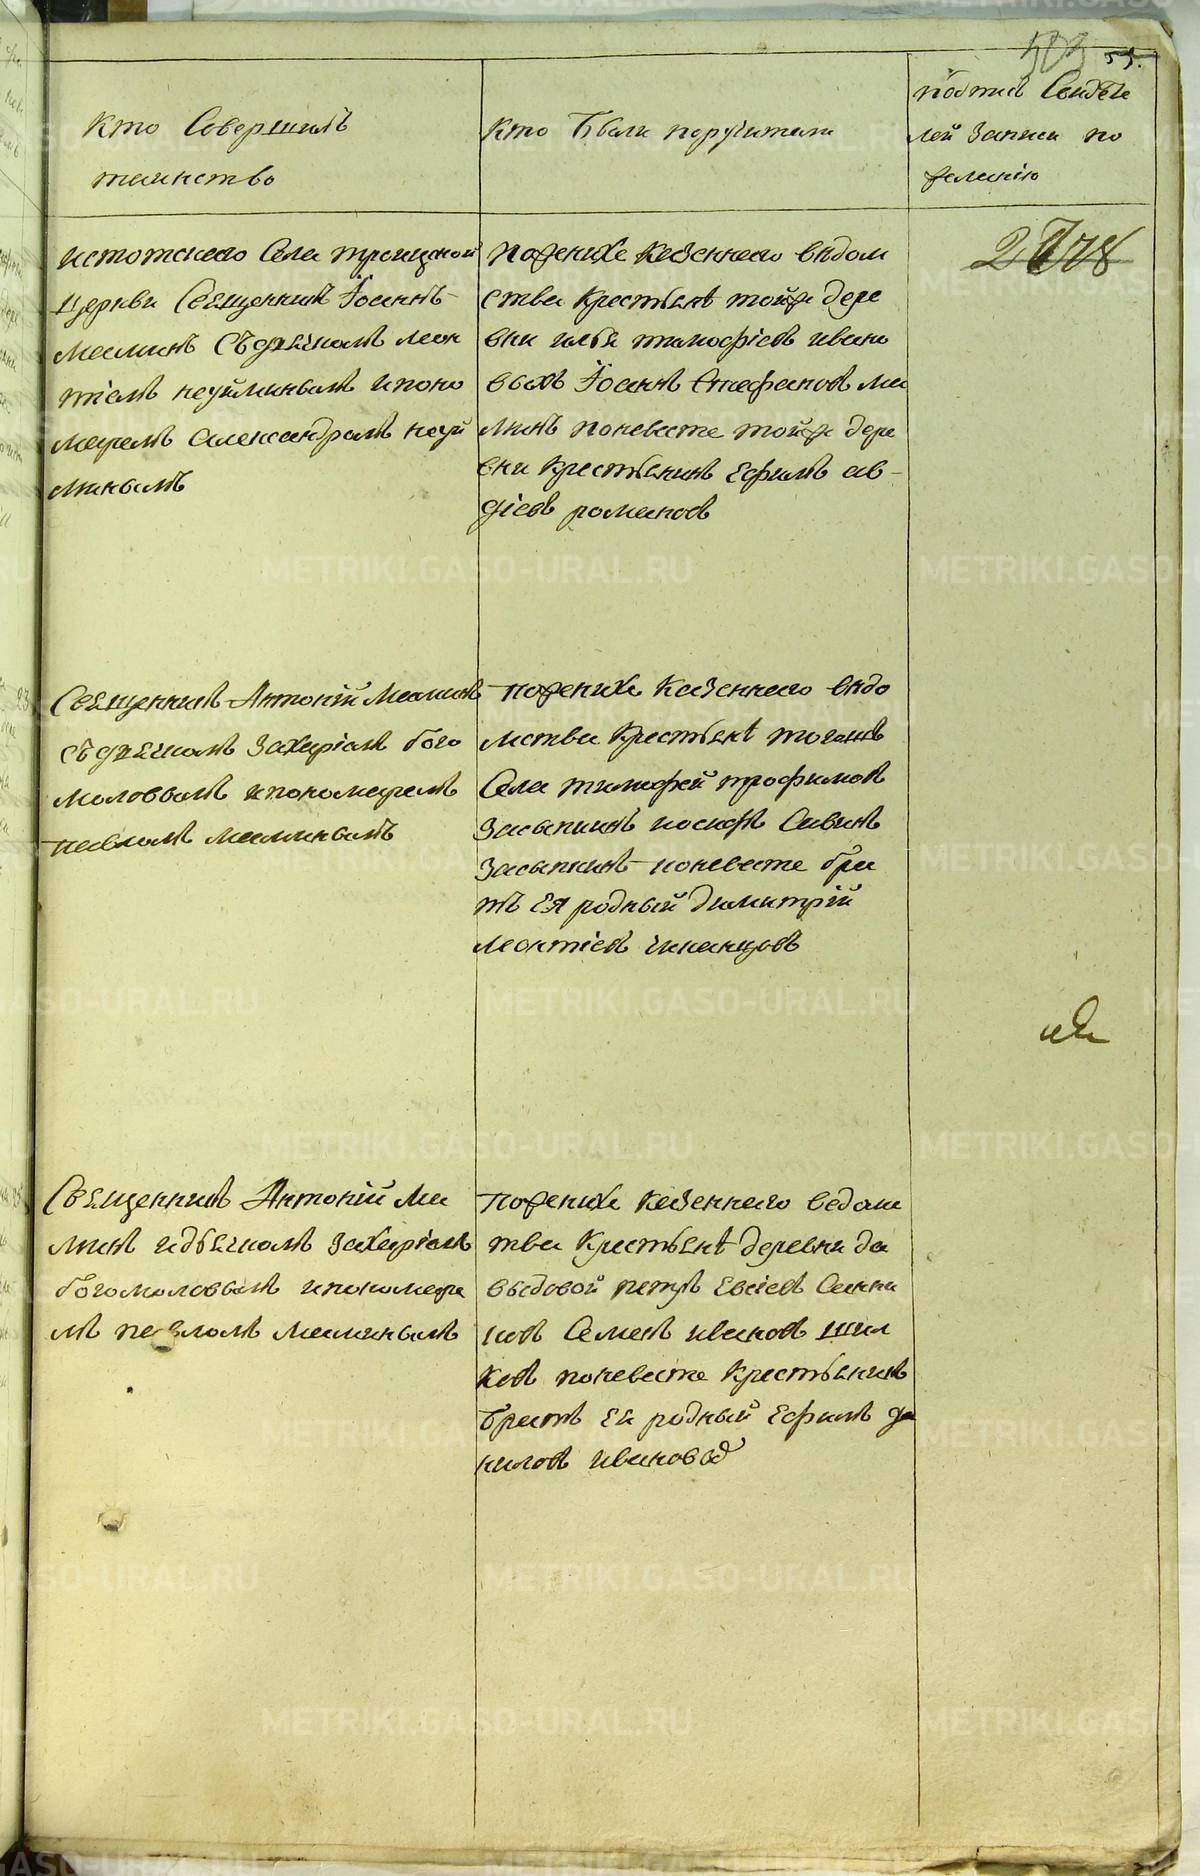 55.
Кто Совершилъ
таинство
Кто Были поручители
подписъ Свидѣте
лей записи по
желанію
Истотского Села троицкой
Церкви Священникъ Іоаннъ
Маминъ Съ дьячкомъ леон
тіемъ неуйминымъ и поно
маремъ александромъ неуй
минымъ
по женихе казеннаго вѣдом
ства Крестьянѣ тойже дере
вни илья тимофѣевъ ивано
выхъ Іоаннъ Стефановъ ма
минъ по невесте тойже дере
вни Крестьянинъ Ефимъ ав-
дѣевъ романовъ
Священникъ Антоній Маминъ
Съ дьячкомъ Захаріемъ бого
моловымъ и пономаремъ
павломъ маминымъ
по женихе Казеннаго вѣдо
мства Крестьянѣ тогожъ
Села тимофей трофимовъ
Засыпкинъ иосифъ Савинъ
Засыпкинъ по невесте бра
тъ Ея родный Димитрій
леонтіевъ
Священникъ Антоній Ма
минъ и дьячкомъ Захаріемъ
богомоловымъ и пономаре
мъ павломъ маминымъ
по женихе Казеннаго ведомс
тва Крестьянѣ деревни да
выдовой петръ Евсѣевъ Санни
ковъ Семенъ ивановъ шил
ковъ по невесте Крестьянинъ
братъ Ея родный Ефимъ да
ниловъ ивановыхъ